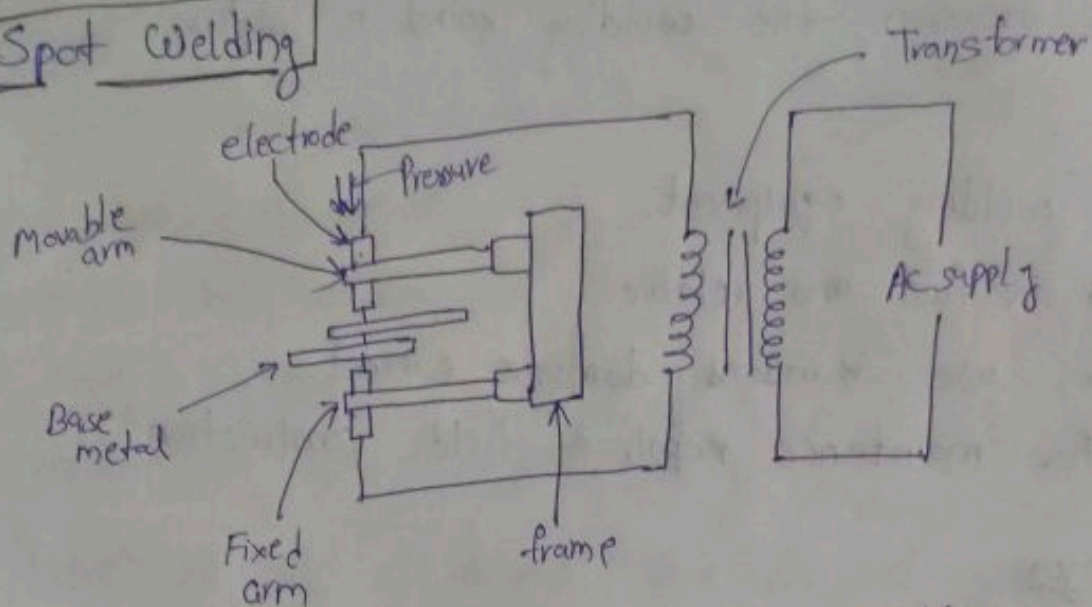 Spot Welding
Transformer
electrode
Pressure
Movable
arm
AC supply
Base
metal
Fixed
arm
frame